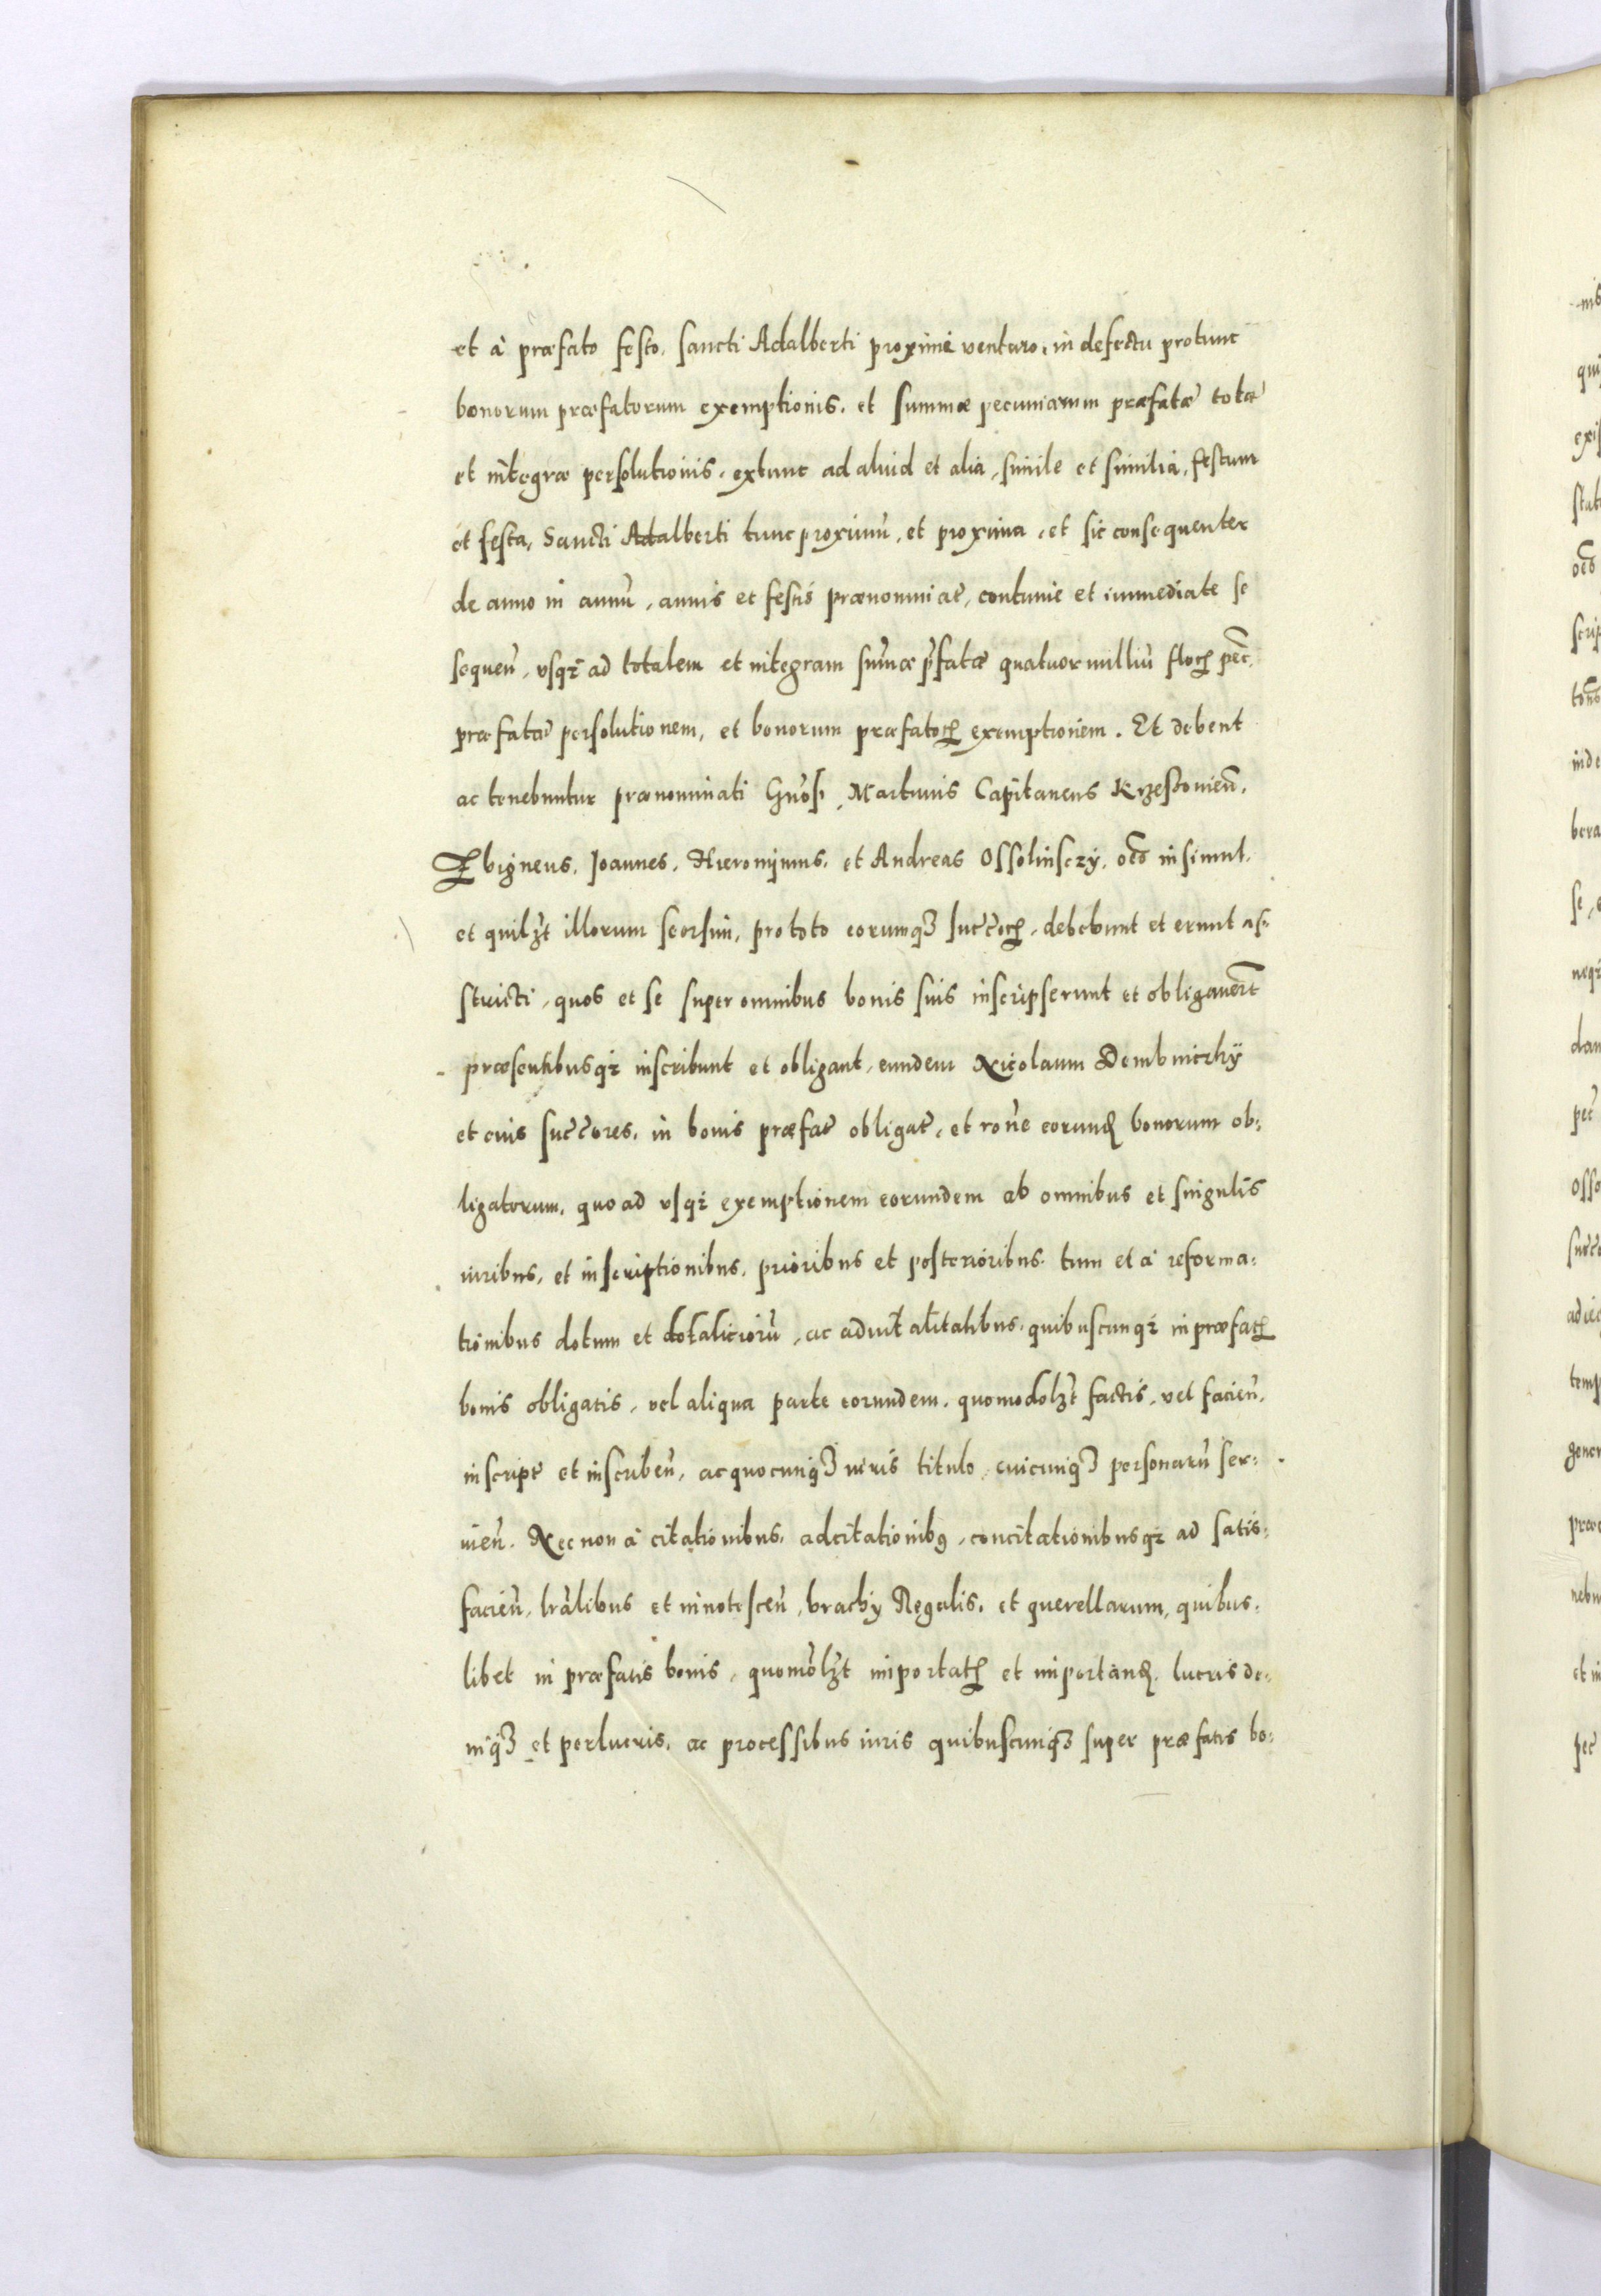 et à præfato festo, sancti Adalberti proximè venturo, in defectu protunc
bonorum præfatorum exemptionis, et summæ pecuniarum præfatæ totæ
et integræ persolutionis, extunc ad aliud et alia, simile et similia, festum
et festa, Sancti Adalberti tunc proximū, et proxima, et sic consequenter
de anno in annū, annis et festis prænominat̄, continuè et immediate se
sequeñ, vsq; ad totalem et integram sum̄æ p̄fatæ quatuor milliū floꝝ pec̄.
præfatæ persolutionem, et bonorum præfatoꝝ exemptionem. Et debent
ac tenebuntur prænominati Gn̄osi, Martinus Capitaneus Krzeszowień,
Zbigneus, Joannes, Hieronimus, et Andreas Ossolinsczÿ, oēs insimul,
et quilꝫt illorum seorsim, pro toto eorumqꝫ succ̄oꝝ, debebunt et erunt as=
stricti, quos et se super omnibus bonis suis inscripserunt et obligauer̄t
præsentibusq; inscribunt et obligant, eundem Nicolaum Dembiniczkÿ
et eius succ̄ores, in bonis præfat̄ obligat̄, et rōne eorund̄ bonorum ob=
ligatorum, quoad vsq; exemptionem eorundem ab omnibus et singulis
iuribus, et inscriptionibus, prioribus et posterioribus, tum et à reforma=
tionibus dotum et dotaliciorū, ac aduitalitatibus, quibuscunq; in præfatꝭ
bonis obligatis, vel aliqua parte eorundem, quomodolꝫt factis, vel facień,
inscript̄ et inscribeñ, ac quocunqꝫ iuris titulo, cuicunqꝫ personarū ser=
uień. Nec non à citationibus, adcitationibꝰ, concitationibusq; ad satis=
facień, lr̄alibus et innotesceñ, brachÿ Regalis, et querellarum, quibus=
libet in præfatis bonis, quomōlꝫt importatꝭ et importand̄, lucris de=
niqꝫ et perlucris, ac processibus iuris quibuscunqꝫ super præfatis bo=